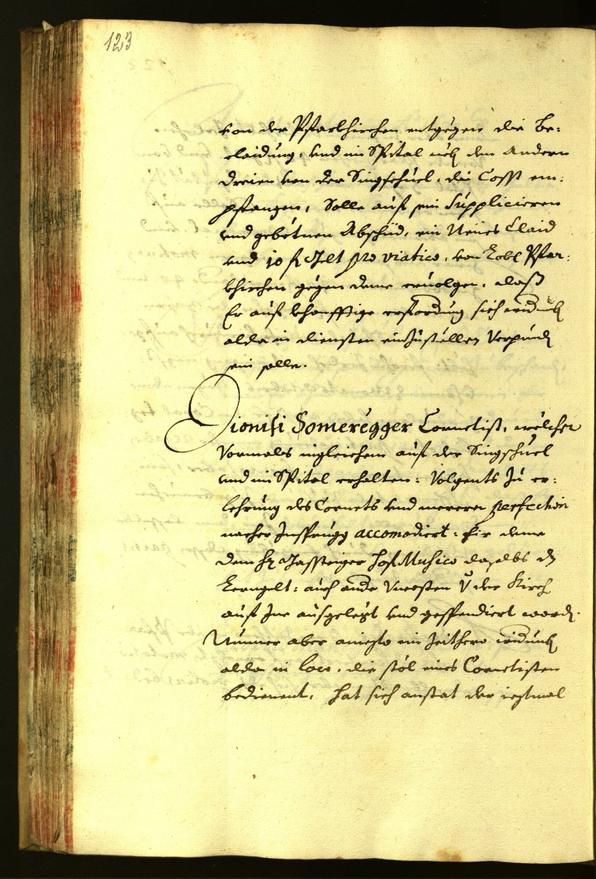 123
von der Pfarkhirchen entgegen die Be:
claidung, und im Spital neb den andern
dreien von der Singschuel, die Cosst em:
pfangen, Solle auf sein Supplicieren
und gebetnen Abschid, ein Neues Claid
und 10 f. Gelt pro viatico, von Lobl Pfar:
khirchen gegen deme ervolgen, dass
Er auf khonfftige erfordrung sich widerumb
alda in diensten einzustellen Verpundtn
sein solle.
Dionisi Someregger Cornetist, welcher
Vormals ingleichem auf der Singschuel
und im Spital erhalten: Volgents zu er:
lehrung des Cornets und merern perfection
nacher Insprugg accomodiert: für deme
dem Hofmusico daselbs
Lerngelt: auch ande Uncosten der Kirch
auf Ine ausgelegt und gespendiert worden.
Nunmer aber aniezto ein Zeithero widerumb
alda in loco, die stöl eines Cornetisten
bedienent, hat sich anstat der iestmal